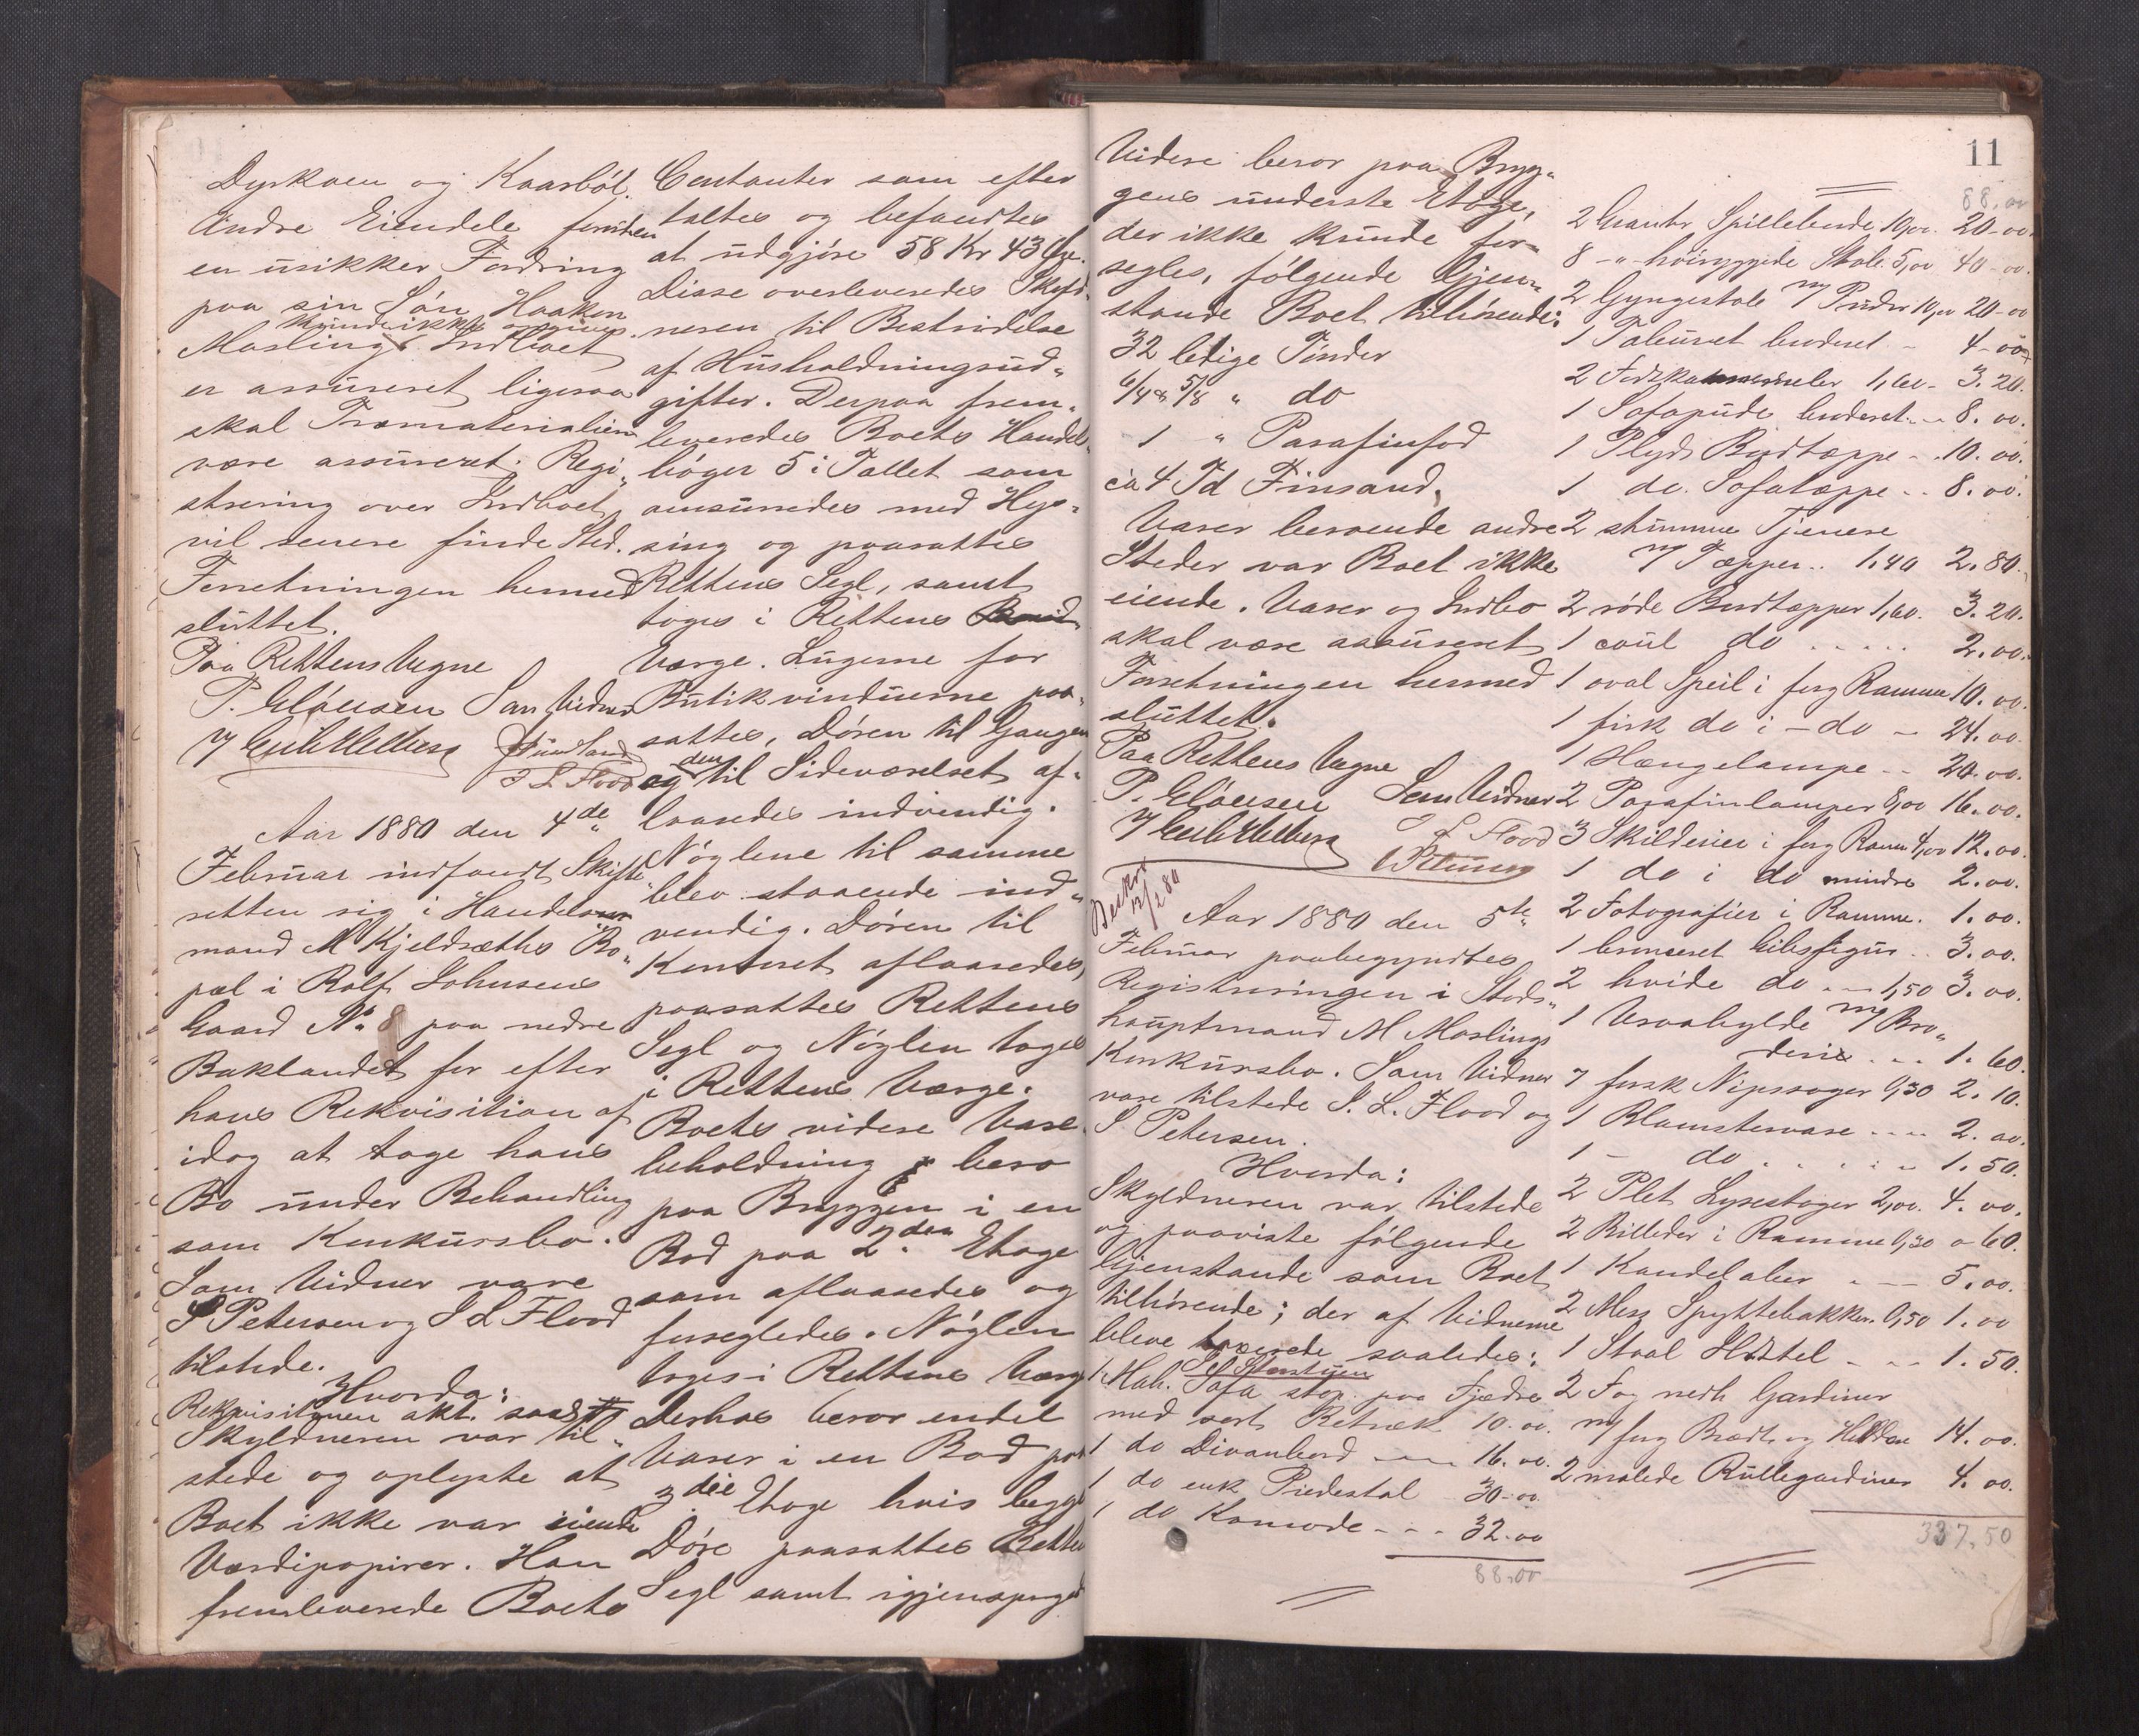 Dyrkoen og Kaarböl.
Andre Eiendele foruden
en usikker Fordring
paa sin Sön Haaken
Kunde ikke opgives.
Masling. Indboet
er assureret ligesaa
skal Træmaterialier
være assureret. Regi„
strering over Indboet
vil senere finde Sted.
Forretningen hermed
sluttet.
Paa Rettens Vegne
P. Clöusen Som Vidner
J L Flood
Aar 1880 den 4de
Februar indfandt Skifte„
retten sig i Handels„
mand M Kjeldsæths Bo„
pæl i Rolf Johnsens
Gaard No 8 paa nedre
Baklandet for efter
hans Rekvisition af
idag at tage hans
Bo under Behandling
som Konkursbo.
Som Vidner vare
S Petersen og I L Flood
tilstede.
Hvorda:
Rekvisitionen akt.
Skyldneren var til„
stede og oplyste at
Boet ikke var eiende
Værdipapirer. Han
fremleverede Boets
Contanter som efter
taltes og befandtes
at udgjöre 58 Kr 43 Öre.
Disse overleveredes Skyld„
neren til Bestridelse
af Husholdningsud„
gifter. Derpaa frem„
leveredes Boets Handels„
böger 5 i Tallet som
omsuredes med Hys„
sing og paasattes
Rettens Segl, samt
toges i Rettens
Værge. Lugerne for
Butikvinduerne paa„
sattes, Dören til Gangen
og den til Sideværelset af„
laasedes indvendig.
Nöglene til samme
blev staaende ind„
vendig. Dören til
Kontoret aflaasedes,
paasattes Rettens
Segl og Nöglen toges
i Rettens Værge.
Boets videre Vare„
beholdning bero
paa Bryggen i en
Bod paa 2den Etage
som aflaasedes og
forsegledes. Nöglen
toges i Rettens Værge
Derhos beror endel
Varer i en Bod paa
3die Etage hvis begge
Döre paasattes Rettens
Segl samt igjenspigred
11
Videre beror paa Bryg„
gens underste Etage,
der ikke kunde for„
segles, fölgende Gjen„
stande Boet tilhörende:
32 ledige Tönder
6/4 & 5/8 „ do
1 „ Parafinfad
ca 4 Td Finsand.
Varer beroende andre
Steder var Boet ikke
eiende. Varer og Indbo
skal være assureret
Forretningen hermed
sluttet.
Paa Rettens Vegne
P. Clöusen Som Vidner
I L Flood
S Petersen
Beskr 12/2 80
Aar 1880 den 5te
Februar paabegyndtes
Registreringen i Stads„
hauptmand M Maslings
Konkursbo. Som Vidner
vare tilstede I. L. Flood og
S Petersen.
Hvorda:
Skyldneren var tilstede
og paaviste fölgende
Gjenstande som Boet
tilhörende; der af Vidnerne
bleve taxerede saaledes:
1 Mah. Sofa stop. paa Fjædre
med sort Betræk 10.00.
1 do Divanbord - - - 16.00.
1 do enk Piedestal 30.00.
1 do Komode - - - 32.00
88.00
88.00
2 Spilleborde 10,00. 20-00.
8 -„- höiryggede Stole. 5,00 40-00.
2 Gyngestole m/ Puder 10,00 20-00
1 Tabouret broderet - 4-00
2 Fodskamler 1,60 - 3.20.
1 Sofapude broderet - - 8.00.
1 Plyds Bordtæppe - . 10.00.
1 do. Sofatæppe - - 8.00.
2 stumme Tjenere
m/ Tæpper.. 1.40 2.80.
2 röde Bordtæpper 1,60. 3.20.
1 coul do ..... 2.00.
1 oval Speil i forg Ramme 10.00.
1 firk do i - do - 24.00.
1 Hængelampe - - 20.00.
2 Parafinlamper 8,00 16.00.
3 Skilderier i forg Ramme 4,00 12.00.
1 do i do mindre 2.00.
2 Fotografier i Ramme. 1.00.
1 bronseret Gibsfigur . . 3.00.
2 hvide do - - 1,50 3.00.
1 Vraahylde m/ Bro„
derie . . . 1.60.
7 forsk Nipssager 0,30 2.10.
1 Blomstervase - - - - 2.00.
1 - do . . . . . 1.50.
2 Plet Lysestager 2,00. 4.00.
2 Billeder i Ramme 0,30 0-60.
1 Kandelaber . - - 5.00.
2 Mess Spyttebakker. 0,50 1.00
1 Staal Hottel - - - 1.50.
2 Fag nedh Gardiner
m/ forg Brædt og Holdere 14.00.
2 malede Rullegardiner 4.00.
337.50